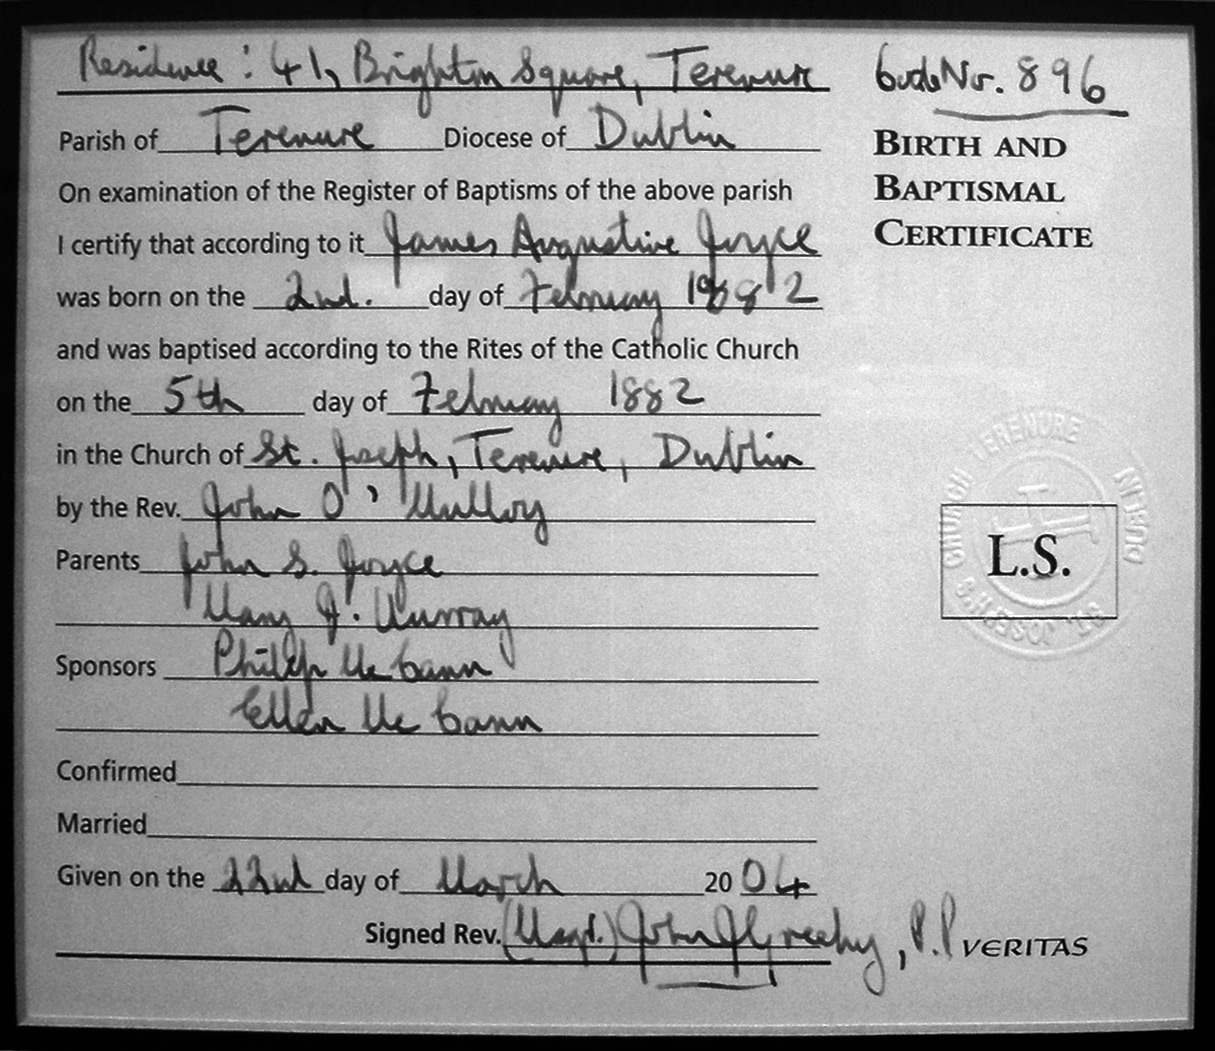 Residence: 41, Brighton Square, Terenure
Code No. 896
BIRTH AND
BAPTISMAL
CERTIFICATE
Parish of Terenure Diocese of Dublin
On examination of the Register of Baptisms of the above parish
I certify that according to it James Augustine Joyce
was born on the 2nd. day of February 1882
and was baptised according to the Rites of the Catholic Church
on the 5th day of February 1882
in the Church of St. Joseph, Terenure, Dublin
by the Rev. John O'Mulloy
Parents John S. Joyce
Mary J. Murray
Sponsors Philip Mc Cann
Ellen Mc Cann
Confirmed
Married
Given on the 22nd day of March 2004
Signed Rev. (Msgr.) John J Greehy, P.P
VERITAS
L.S.
ST. JOSEPH'S CHURCH TERENURE DUBLIN